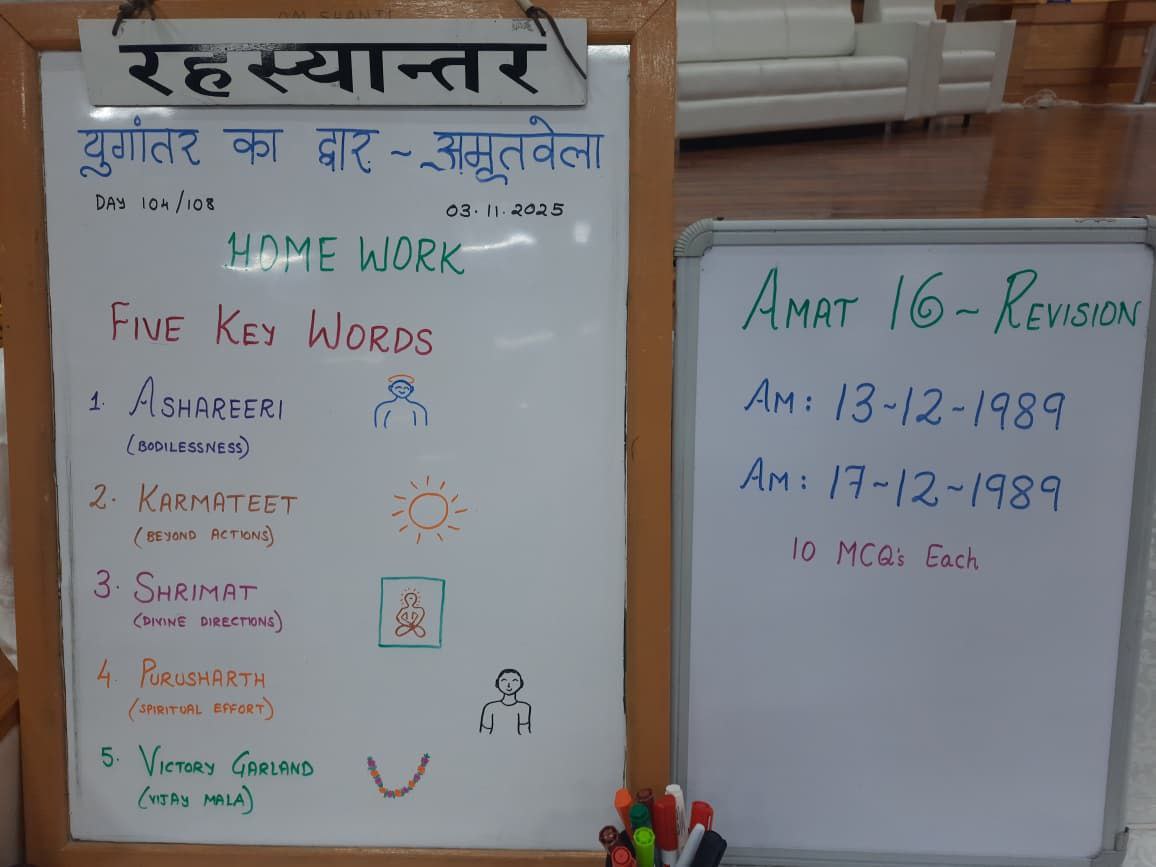 OM SHANTI
रहस्यान्तर
युगांतर का द्वार ~ अमृतवेला
DAY 104/108
03.11.2025
HOME WORK
FIVE KEY WORDS
1. ASHAREERI
(BODILESSNESS)
2. KARMATEET
(BEYOND ACTIONS)
3. SHRIMAT
(DIVINE DIRECTIONS)
4. PURUSHARTH
(SPIRITUAL EFFORT)
5. VICTORY GARLAND
(VIJAY MALA)
AMAT 16 ~ REVISION
AM: 13-12-1989
AM: 17-12-1989
10 MCQ's Each